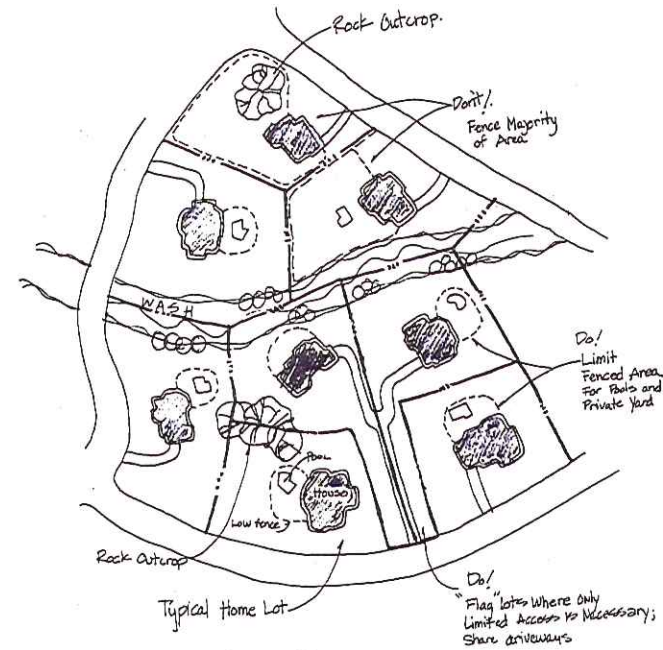 Rock Outcrop.
Don't!
Fence Majority
of Area
WASH
Do!
Limit
Fenced Area
For Pools and
Private Yard
POOL
House
Low fence
Rock Outcrop
Typical Home Lot
Do!
"Flag" lots Where Only
Limited Access Is Necessary;
Share driveways